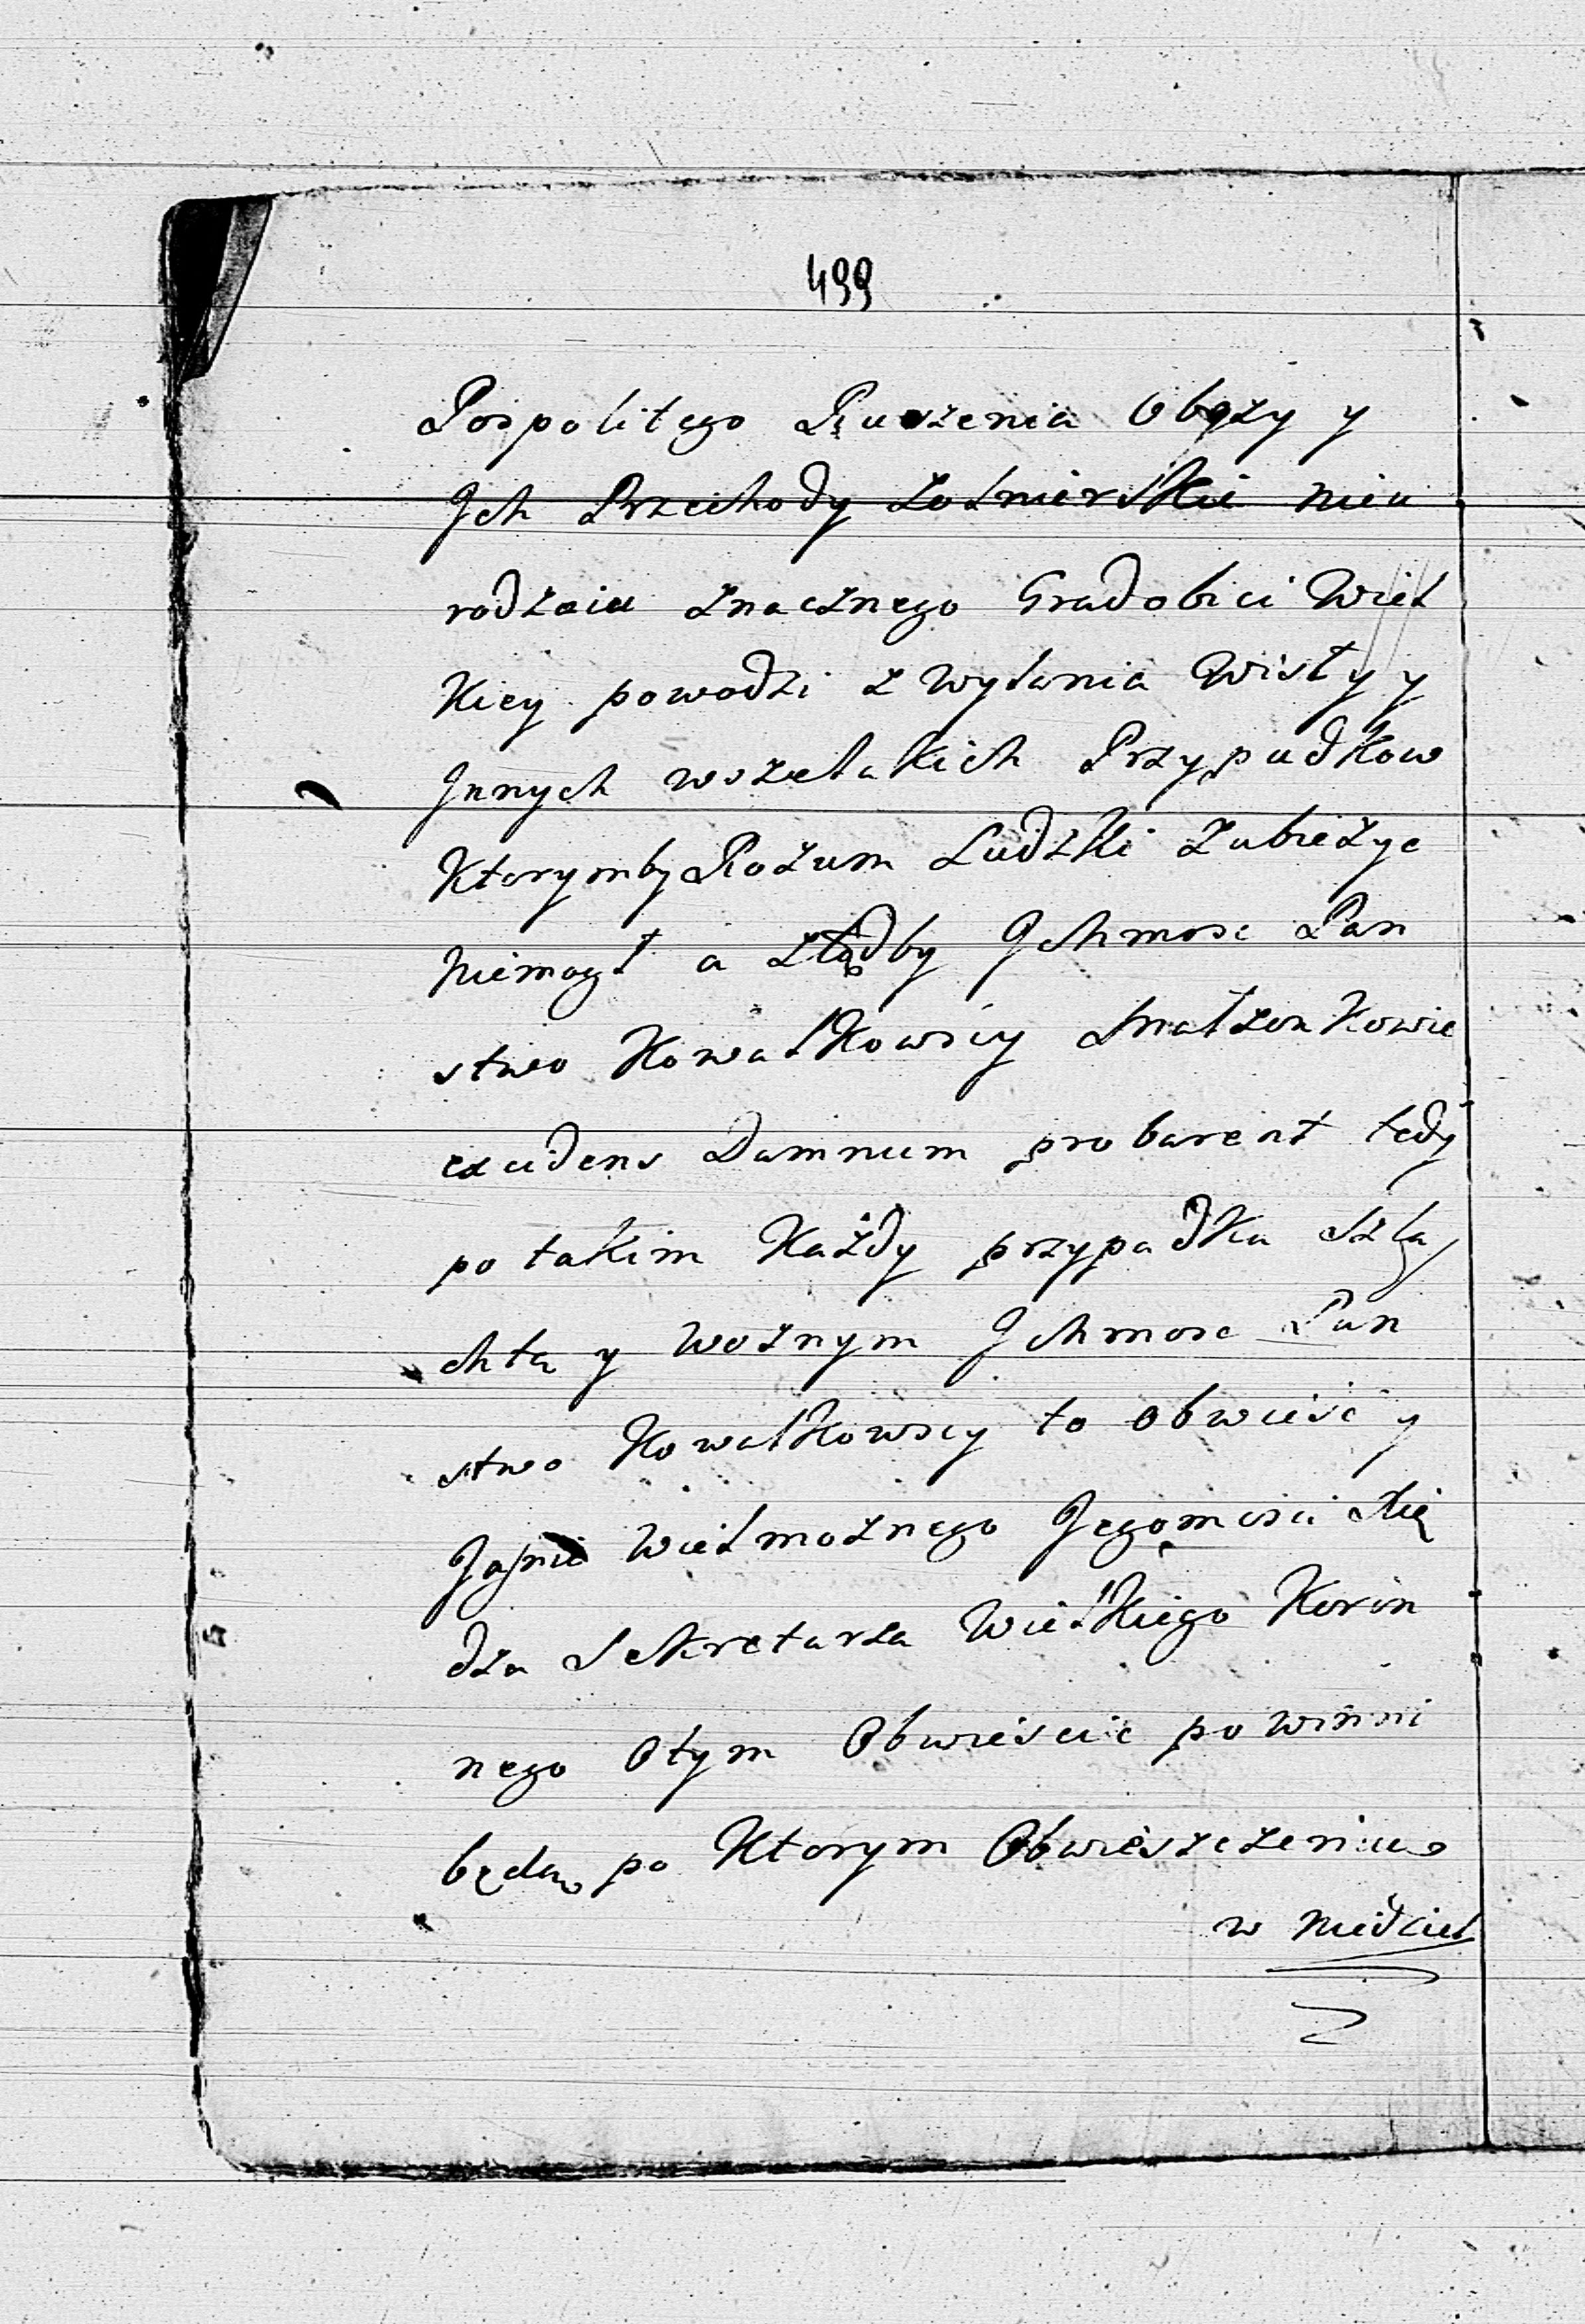 499
Pospolitego Ruszenia Obozy y
Jch Przechody Zołnierskie nieu
rodzaiu znacznego Gradobici Wiel
kiey powodzi z wylania Wisły y
Jnnych wszelakich Przypadkow
Ktorymby Rozum Ludzki Zabieżyc
niemogł a ztądby Jchmosc Pan
stwo Kowalkowscy Małzonkowie
evidens Damnum probarent tedy
po takim Każdy przypadku Szla
chta y Woznym Jchmosc Pan
stwo Kowalkowscy to obwiesc y
Jasnie Wielmoznego Jegomosci Xię
dza Sekretarza Wielkiego Koron
nego Otym Obwiescic powinni
będą po Ktorym Obwieszczeniu
w niedziel